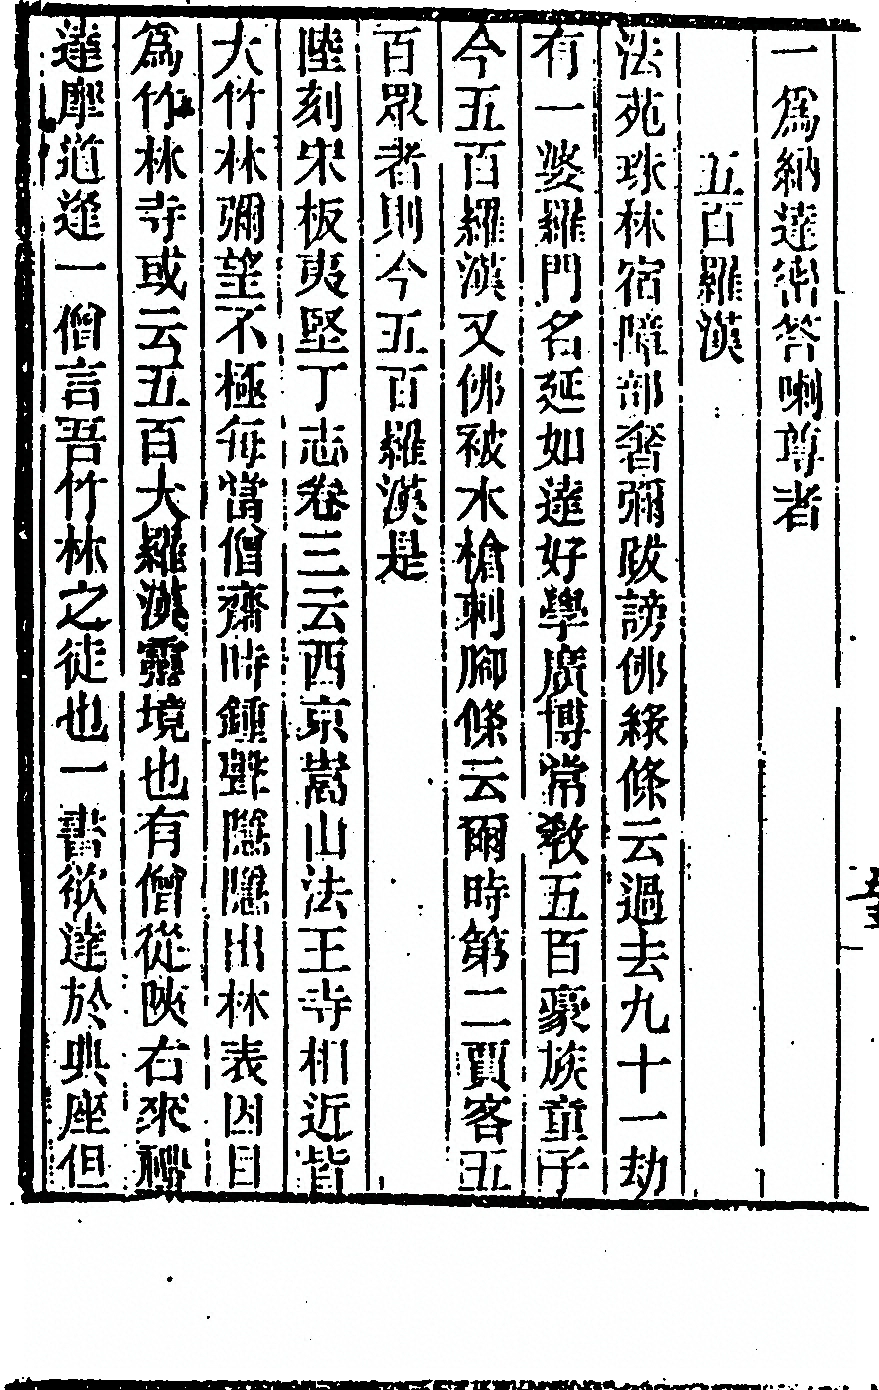 一爲納達密答喇尊者
五百羅漢
法苑珠林宿障部奢彌跋謗佛緣條云過去九十一劫
有一婆羅門名延如達好學廣博常敎五百豪族童子
今五百羅漢又佛被木槍刺腳條云爾時第二賈客五
百眾者則今五百羅漢是
陸刻宋板夷堅丁志卷三云西京嵩山法王寺相近皆
大竹林彌望不極每當僧齋時鍾聲隱隱出林表因目
爲竹林寺或云五百大羅漢靈境也有僧從陝右來禮
達摩道逢一僧言吾竹林之徒也一書欲達於典座但